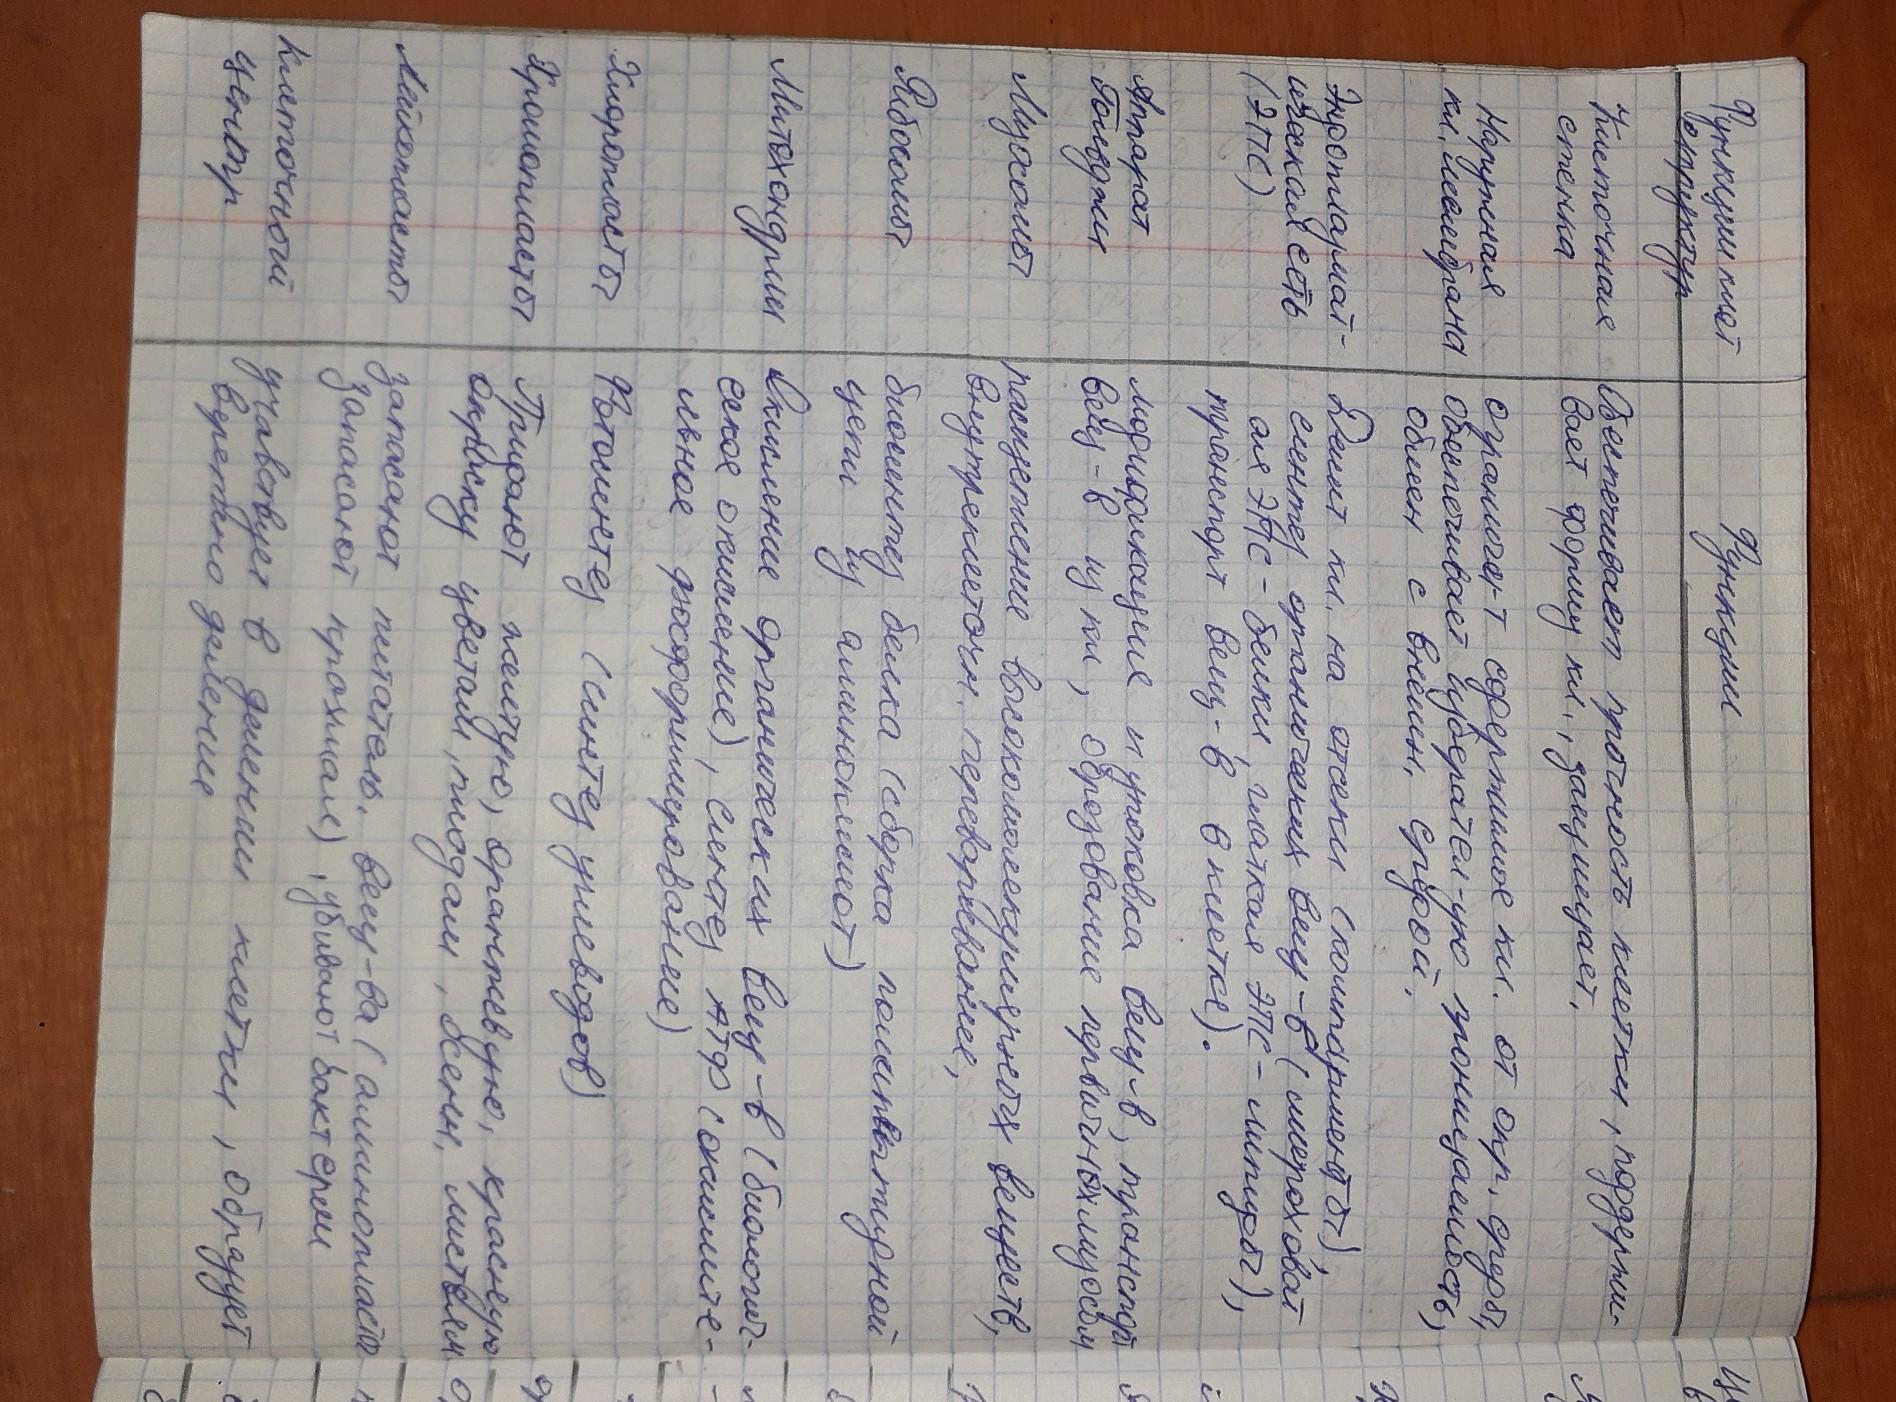 Функции клет
структур
Функции
Клеточная
стенка
Обеспечивает прочность клетки, поддержи-
вает форму кл., защищает.
Наружная
кл. мембрана
огранич-т содержимое кл. от окр. среды,
обеспечивает избирател-ую проницаемость,
обмен с внешн. средой.
Эндоплазмат-
ическая сеть
(ЭПС)
Делит кл. на отсеки (компартменты),
синтез органических вещ-в (шероховат
ая ЭПС - белки, гладкая ЭПС - липиды),
транспорт вещ-в в клетке).
Аппарат
Гольджи
модификация и упаковка вещ-в, транспорт
вещ-в из кл, образование первичных лизосом
Лизосомы
расщепление высокомолекулярных веществ,
внутриклеточн. переваривание,
Рибосомы
биосинтез белка (сборка полипептидной
цепи из аминокислот)
Митохондрии
Окисление органических вещ-в (биологич-
еское окисление), синтез АТФ (окислите-
льное фосфорилирование)
Хлоропласты
Фотосинтез (синтез углеводов)
Хромопласты
Придают желтую, оранжевую, красную
окраску цветам, плодам, осенн. листьям
Лейкопласты
запасают питатель. вещ-ва (аминопласты
запасают крахмал), убивают бактерии
Клеточный
центр
участвует в делении клетки, образует
веретено деление